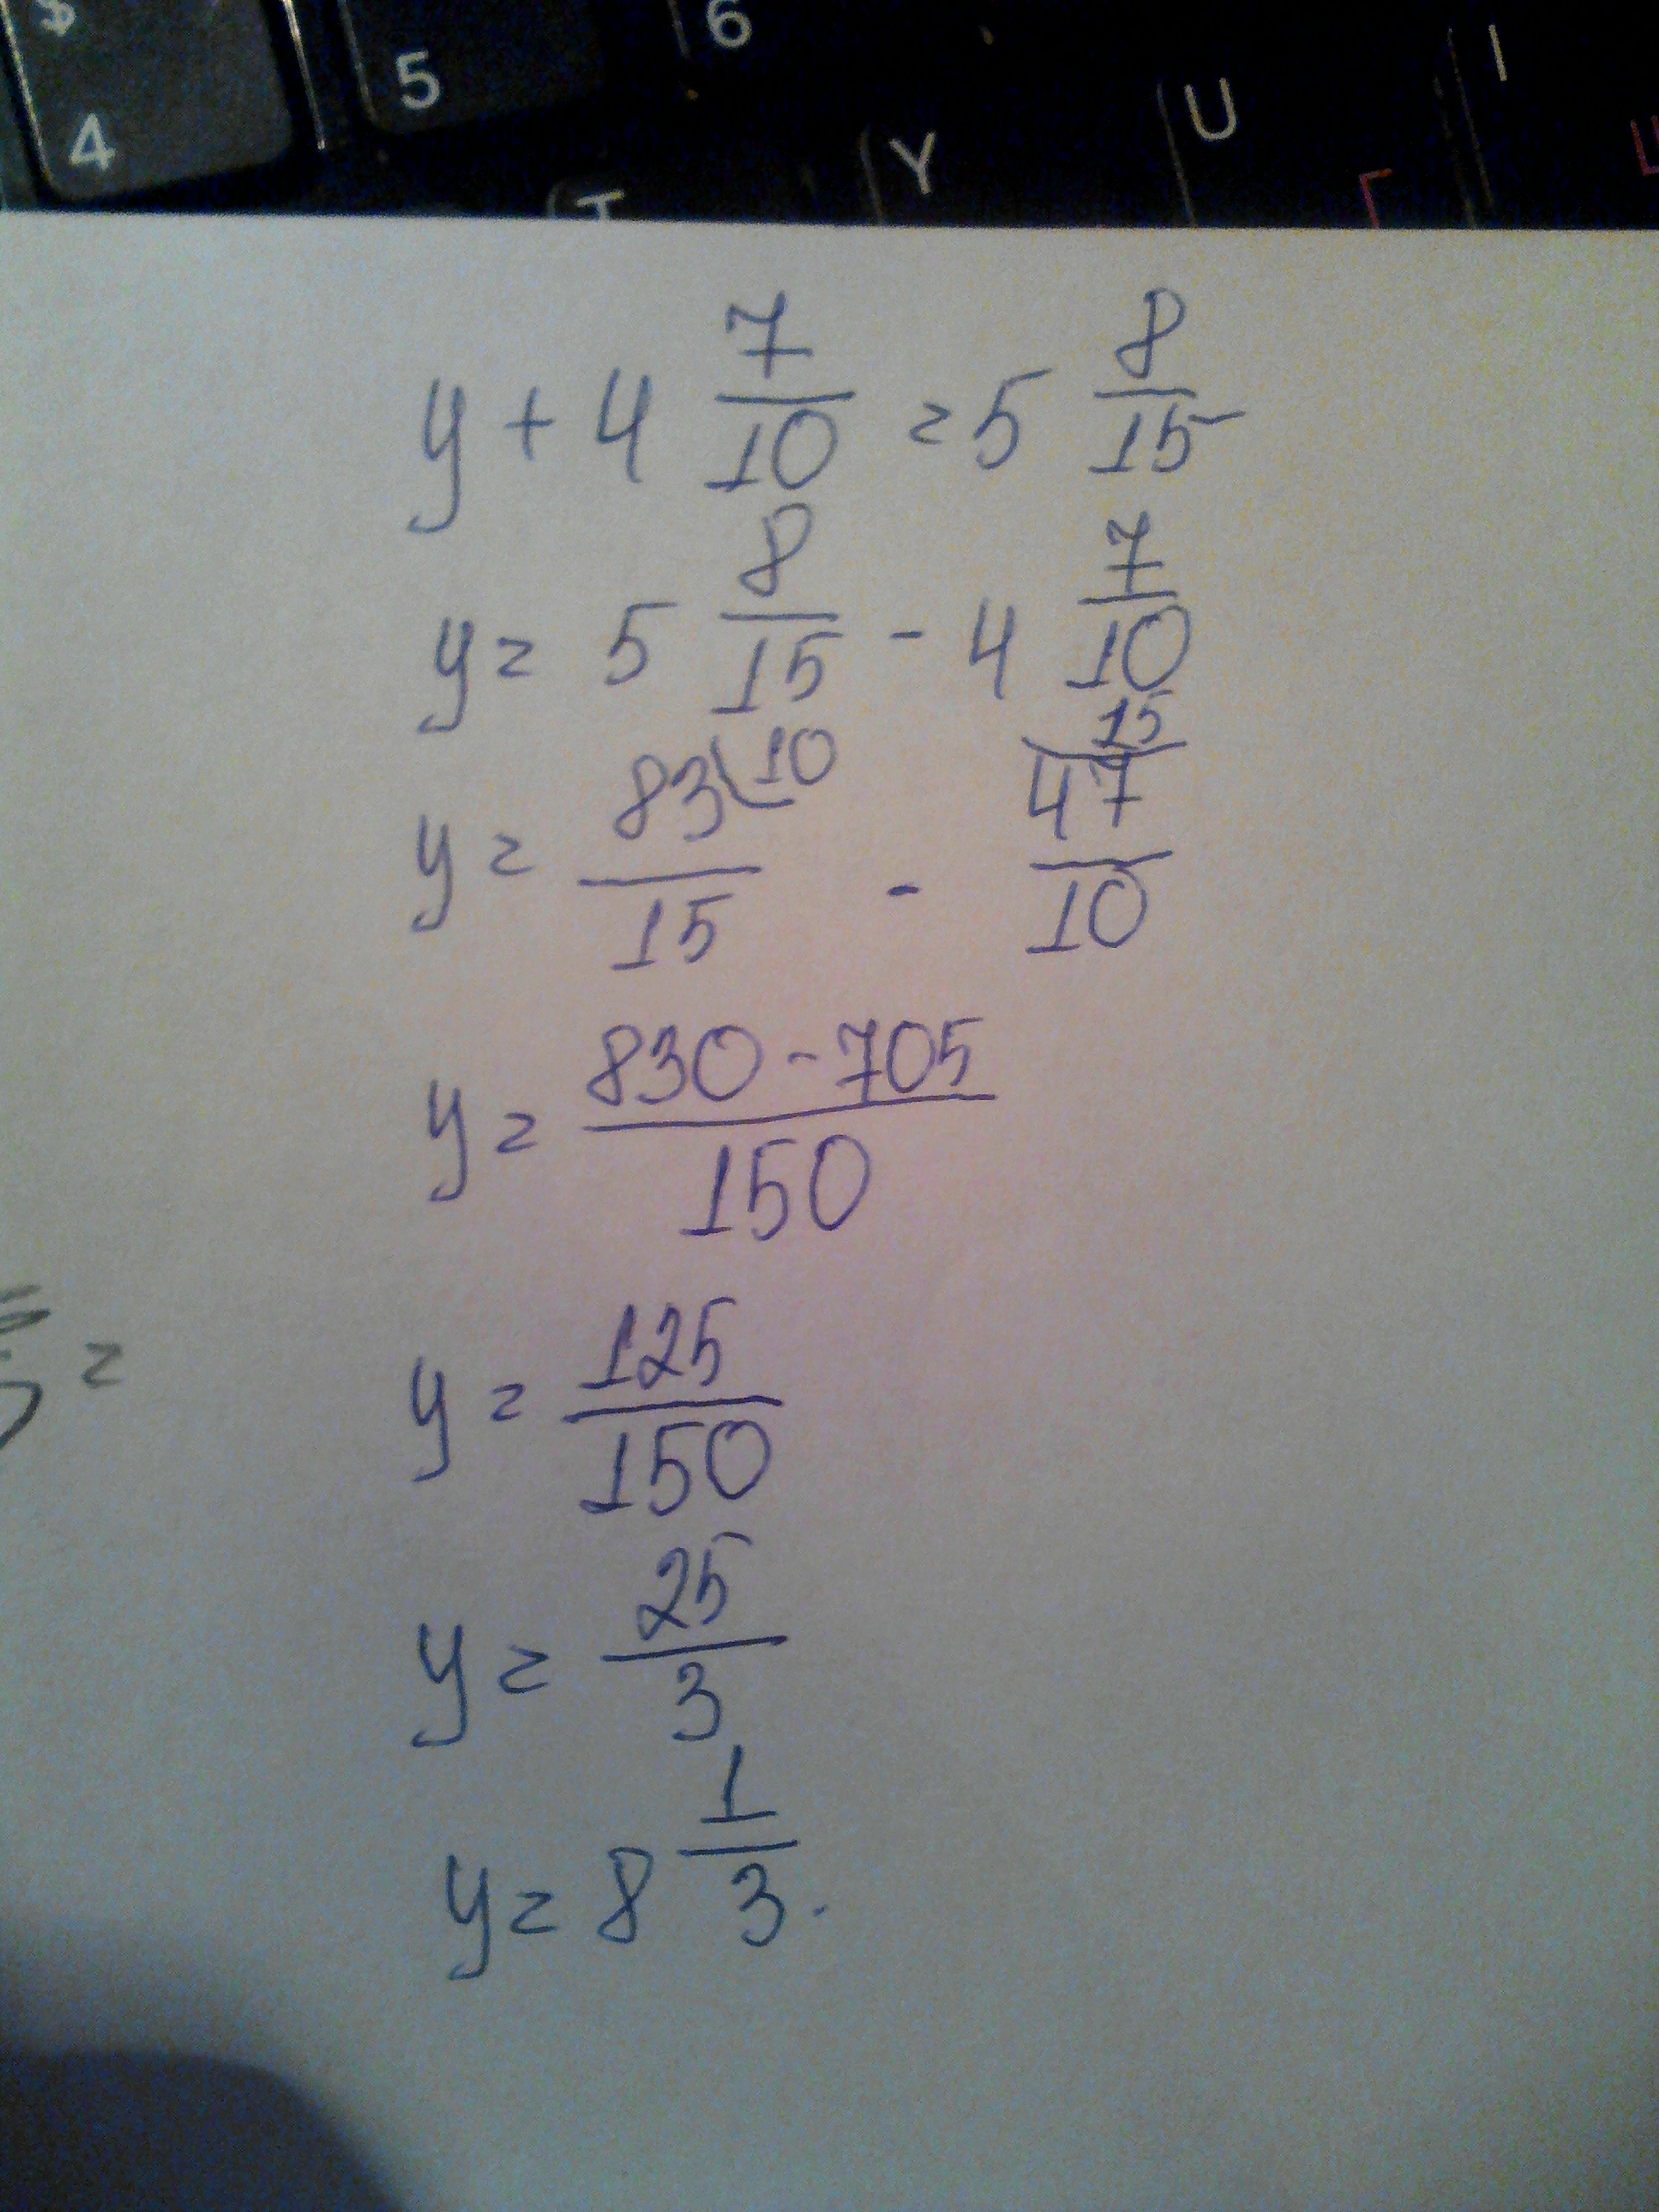 $ 4 5 6
T Y U I
Г
y + 4 7/10 = 5 8/15
y = 5 8/15 - 4 7/10
y = 83\10/15 - 47\15/10
y = 830 - 705/150
y = 125/150
=
y = 25/3
y = 8 1/3.